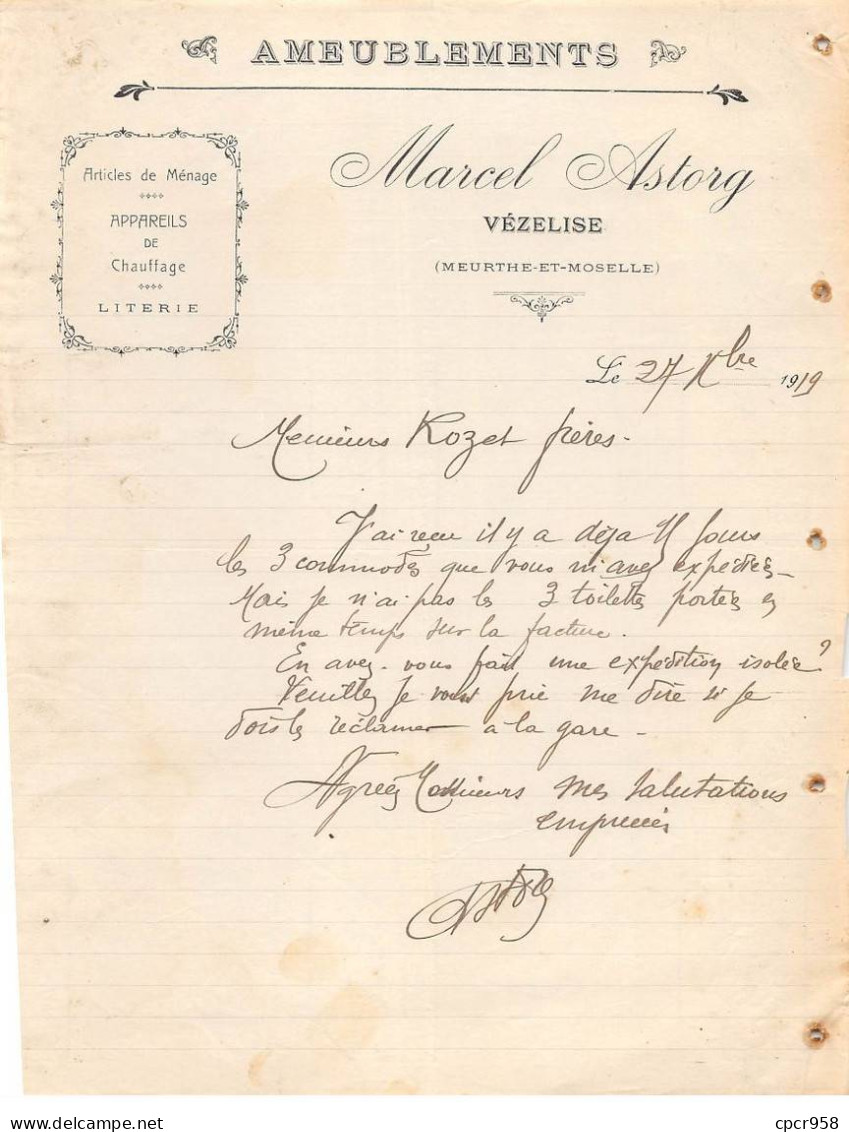 AMEUBLEMENTS
Articles de Ménage
APPAREILS
DE
Chauffage
LITERIE
Marcel Astorg
VÉZELISE
(MEURTHE-ET-MOSELLE)
Le 27 Xbre 1919
Messieurs Rozet frères.
J'ai reçu il y a déjà jours
les 3 commodes que vous m'avez expédiées
Mais je n'ai pas les 3 toilettes portées en
même temps sur la facture.
En avez-vous fait une expédition isolée?
Veuillez je vous prie me dire si je
dois les réclamer à la gare -
Agréez Messieurs mes salutations
empressées
Astorg
cpcr958